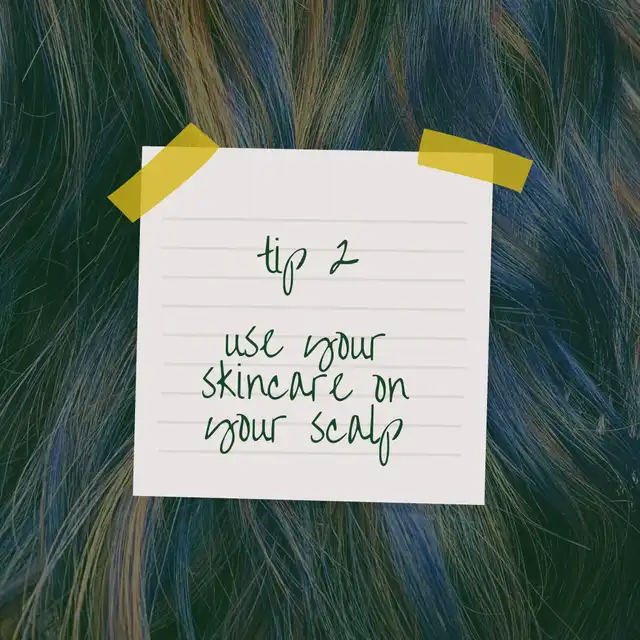 tip 2
use your
skincare on
your scalp